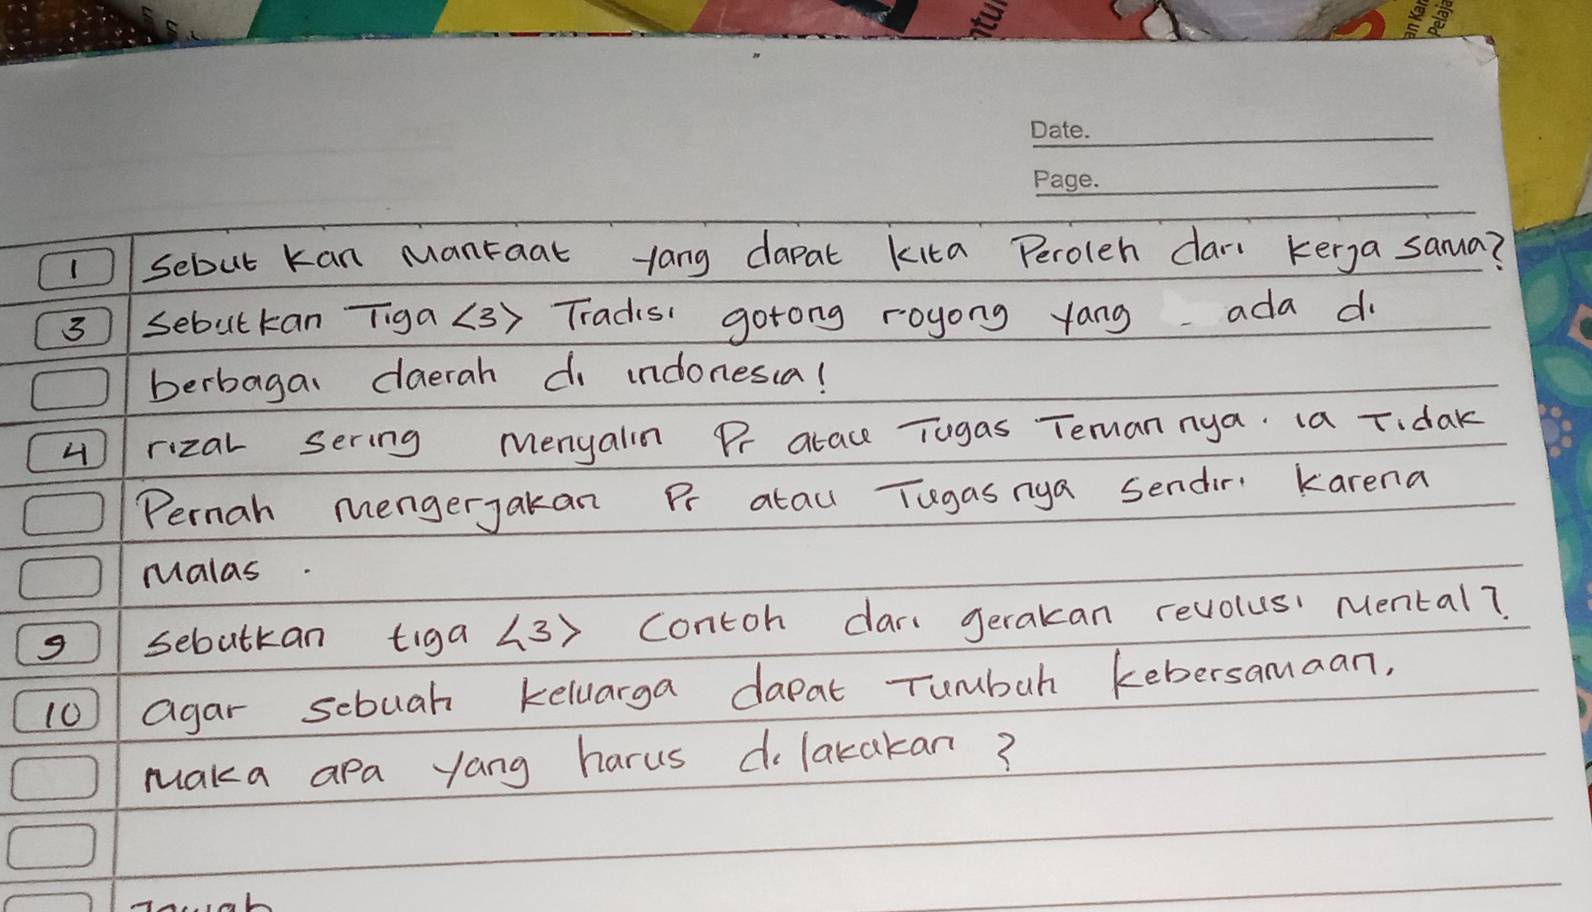 ntu
an Kar
Pelaja
Date.
Page.
1 sebut kan Manfaat yang dapat kita Peroleh dari kerja sama?
3 sebutkan Tiga <3> Tradisi gotong royong yang - ada di
berbagai daerah di indonesia!
4 rizal sering Menyalin Pr atau Tugas Teman nya. ia Tidak
Pernah mengerjakan Pr atau Tugas nya sendiri karena
Malas .
9 sebutkan tiga <3> contoh dari gerakan revolusi Mental?
10 agar sebuah keluarga dapat Tumbuh kebersamaan,
Maka apa yang harus di lakukan ?
Jawab